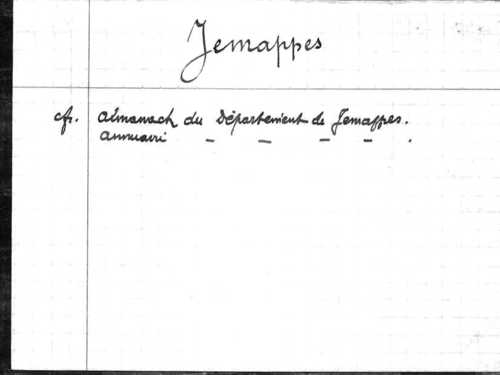 Jemappes
cfr. Almanach du Département de Jemappes.
Annuaire - - - - .